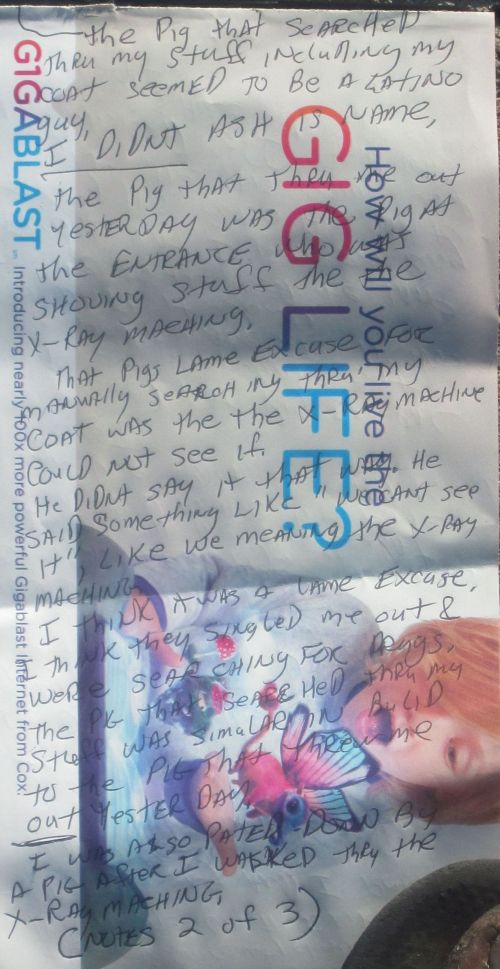 the Pig that SEARCHED
thru my stuff including my
COAT SEEMED TO BE A LATINO
guy,
I DIDNT ASH IS NAME,
the Pig that thru me out
YESTERDAY WAS the Pig At
the ENTRANCE who was
SHOVING stuff the the
X-RAY MACHING,
THAT PIGS LAME EXCUSE FOR
MANUALLY SEARCHING thru my
COAT WAS the the X-RAY MACHINE
COULD NOT SEE it.
He DIDNT SAY it that WAY. He
SAID Something LIKE "WE CANT SEE
it", LIKE we meaning the X-RAY
MACHING
I THINK it WAS A LAME EXCUSE,
I think they singled me out &
WERE SEARCHING FOR DRUGS,
the PIG that SEARCHED thru my
Stuff WAS SIMULAR IN BUILD
to the PIG that threw me
out YESTERDAY,
I WAS ALSO PATED-DOWN By
A PIG AFTER I WALKED thru the
X-RAY MACHING,
(NOTES 2 of 3)
G1GABLAST
Introducing nearly 100x more powerful Gigablast Internet from Cox.
How will you live the
GIG LIFE?